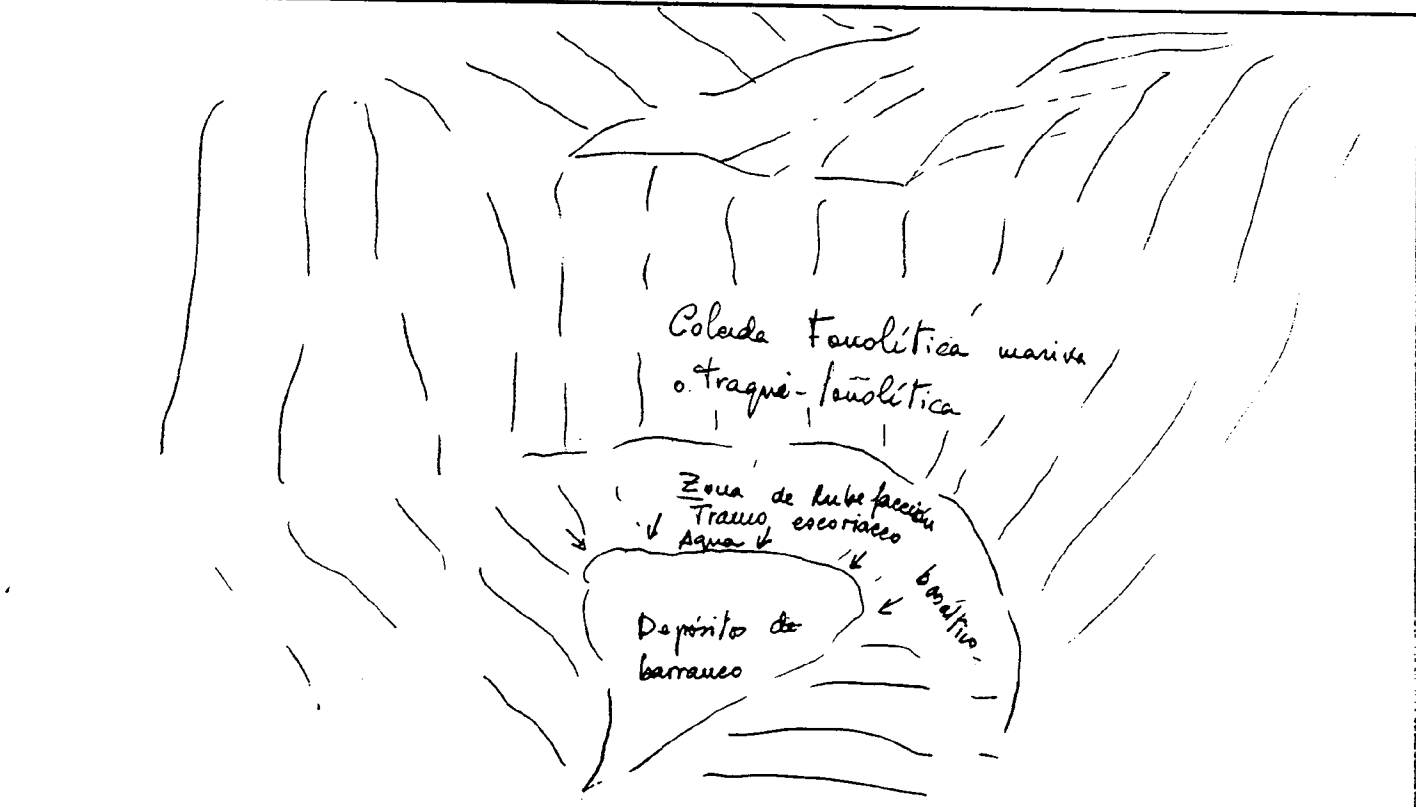 Colada Fonolítica masiva
o. traqui-fonolítica
Zona de Rubefacción
Tramo escoriaceo
Agua
basáltico
Depósitos de
barranco